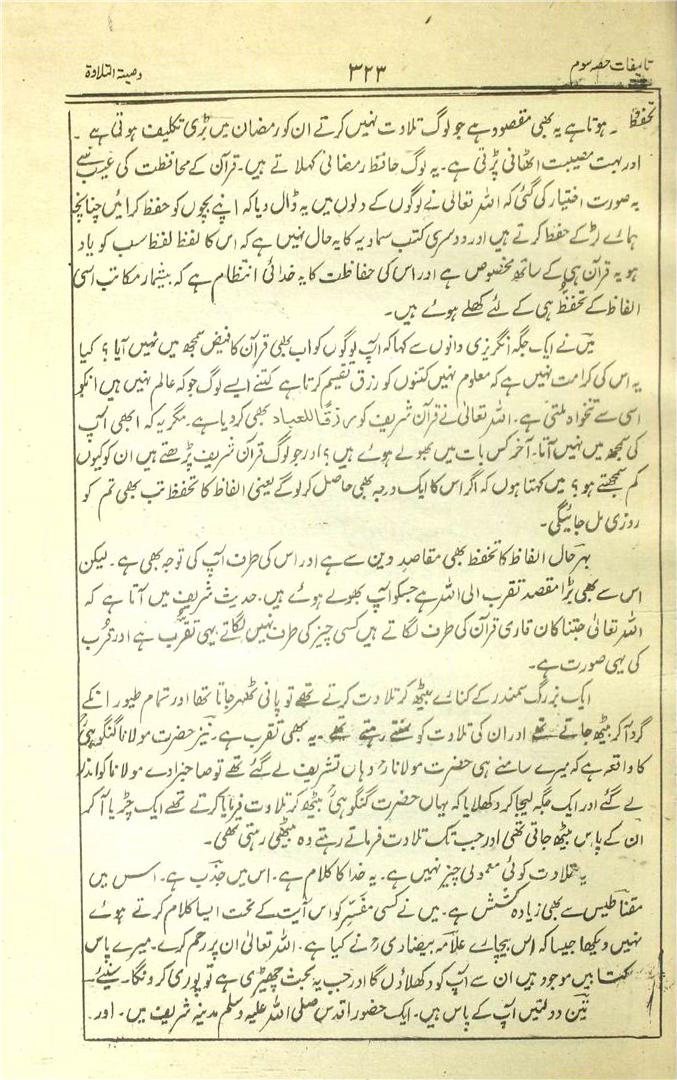 تالیفات حصہ سوم ۳۲۳ وصیۃ التلاوۃ
تحفظ ہوتا ہے یہ بھی مقصود ہے جو لوگ تلاوت نہیں کرتے ان کو رمضان میں بڑی تکلیف ہوتی ہے ۔
اور بہت مصیبت اٹھانی پڑتی ہے۔ یہ لوگ حافظ رمضانی کہلاتے ہیں۔ قرآن کے محافظت کی عجیب سے
یہ صورت اختیار کی گئی کہ اللہ تعالٰی نے لوگوں کے دلوں میں یہ ڈال دیا کہ اپنے بچوں کو حفظ کرائیں چنانچہ
ہمارے لڑکے حفظ کرتے ہیں اور دوسری کتب سماویہ کا یہ حال نہیں ہے کہ اس کا لفظ لفظ سب کو یاد
ہو یہ قرآن ہی کے ساتھ مخصوص ہے اور اس کی حفاظت کا یہ خدائی انتظام ہے کہ بیشمار مکاتب اسی
الفاظ کے تحفظ ہی کے لئے کھلے ہوئے ہیں۔
میں نے ایک جگہ انگریزی دانوں سے کہا کہ آپ لوگوں کو اب بھی قرآن کا فیض سمجھ میں نہیں آیا ؟ کیا
یہ اس کی کرامت نہیں ہے کہ معلوم نہیں کتنوں کو رزق تقسیم کرتا ہے کتنے ایسے لوگ جو کہ عالم نہیں ہیں انکو
اسی سے تنخواہ ملتی ہے۔ اللہ تعالٰی نے قرآن شریف کو رزقًا للعباد بھی کر دیا ہے۔ مگر یہ کہ ابھی آپ
کی سمجھ میں نہیں آتا۔ آخر کس بات میں بھولے ہوئے ہیں؟ اور جو لوگ قرآن شریف پڑھتے ہیں ان کو کیوں
کم سمجھتے ہو؟ میں کہتا ہوں کہ اگر اس کا ایک درجہ بھی حاصل کر لو گے یعنی الفاظ کا تحفظ تب بھی تم کو
روزی مل جائیگی۔
بہرحال الفاظ کا تحفظ بھی مقاصد دین سے ہے اور اس کی طرف آپ کی توجہ بھی ہے ۔ لیکن
اس سے بھی بڑا مقصد تقرب الی اللہ ہے جسکو آپ بھولے ہوئے ہیں۔ حدیث شریف میں آتا ہے کہ
اللہ تعالٰی جتنا کان قاری قرآن کی طرف لگاتے ہیں کسی چیز کی طرف نہیں لگاتے یہی تقرب ہے اور قرب
کی یہی صورت ہے۔
ایک بزرگ سمندر کے کنارے بیٹھ کر تلاوت کرتے تھے تو پانی ٹھہر جاتا تھا اور تمام طیور انکے
گرد آ کر بیٹھ جاتے تھے اور ان کی تلاوت کو سنتے رہتے تھے ۔ یہ بھی تقرب ہے۔ نیز حضرت مولانا گنگوہیؒ
کا واقعہ ہے کہ میرے سامنے ہی حضرت مولاناؒ وہاں تشریف لے گئے تھے تو صاحبزادے مولانا کو اندر
لے گئے اور ایک جگہ لیجا کر دکھلایا کہ یہاں حضرت گنگوہیؒ بیٹھ کر تلاوت فرمایا کرتے تھے ایک چڑیا آ کر
ان کے پاس بیٹھ جاتی تھی اور جب تک تلاوت فرماتے رہتے وہ بیٹھی رہتی تھی۔
یہ تلاوت کوئی معمولی چیز نہیں ہے۔ یہ خدا کا کلام ہے۔ اس میں جذب ہے۔ اس میں
مقناطیس سے بھی زیادہ کشش ہے۔ میں نے کسی مفسر کو اس آیت کے تحت ایسا کلام کرتے ہوئے
نہیں دیکھا جیسا کہ اس بیچارے علامہ بیضاویؒ نے کیا ہے۔ اللہ تعالٰی ان پر رحم کرے۔ میرے پاس
کتابیں موجود ہیں ان سے آپ کو دکھلاؤں گا اور جب یہ بحث چھیڑی ہے تو پوری کرونگا۔ سنئے۔
تین دولتیں آپ کے پاس ہیں۔ ایک حضور اقدس صلی اللہ علیہ وسلم مدینہ شریف میں۔ اور۔